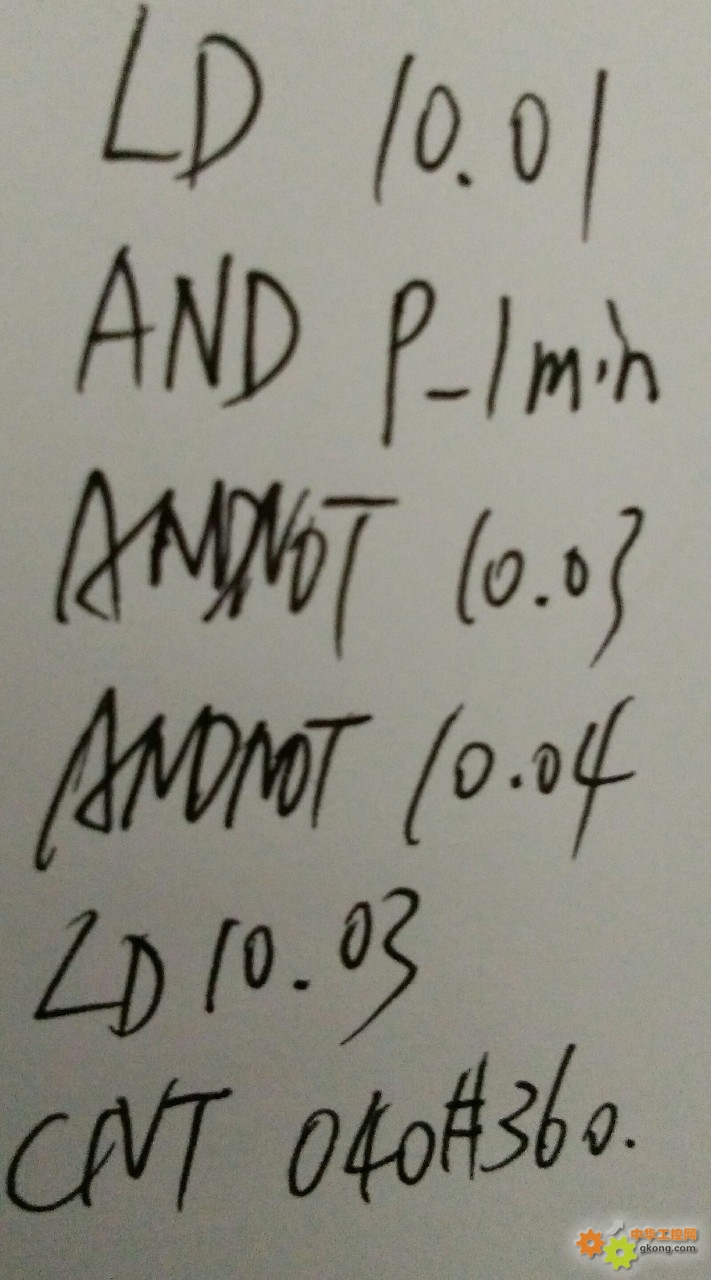 LD 10.01
AND P_1min
ANDNOT 10.03
ANDNOT 10.04
LD 10.03
CNT 040#360.
中华工控网
gkong.com